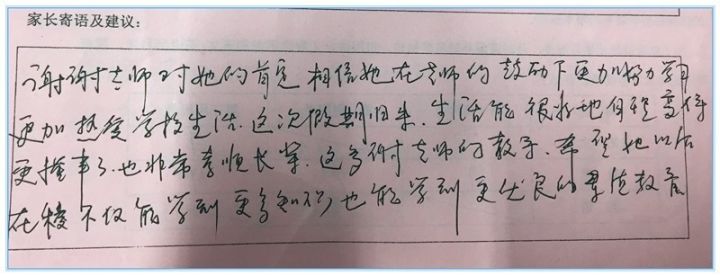 家长寄语及建议：
谢谢老师对她的肯定 相信她在老师的鼓励下更加努力学习
更加热爱学校生活.这次假期归来.生活能很好地自理 变得
更懂事了.也非常孝顺长辈.这多谢老师的教导.希望她以后
在校不仅能学到更多知识 也能学到更优良的品德教育